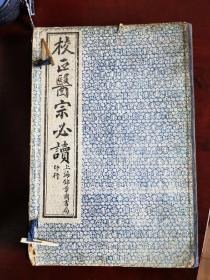 校正醫宗必讀
上海錦章圖書局
印行